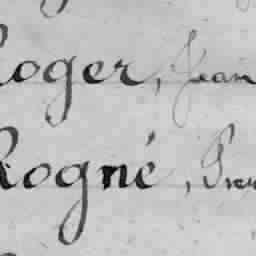 Roger, Jean
Rogné,